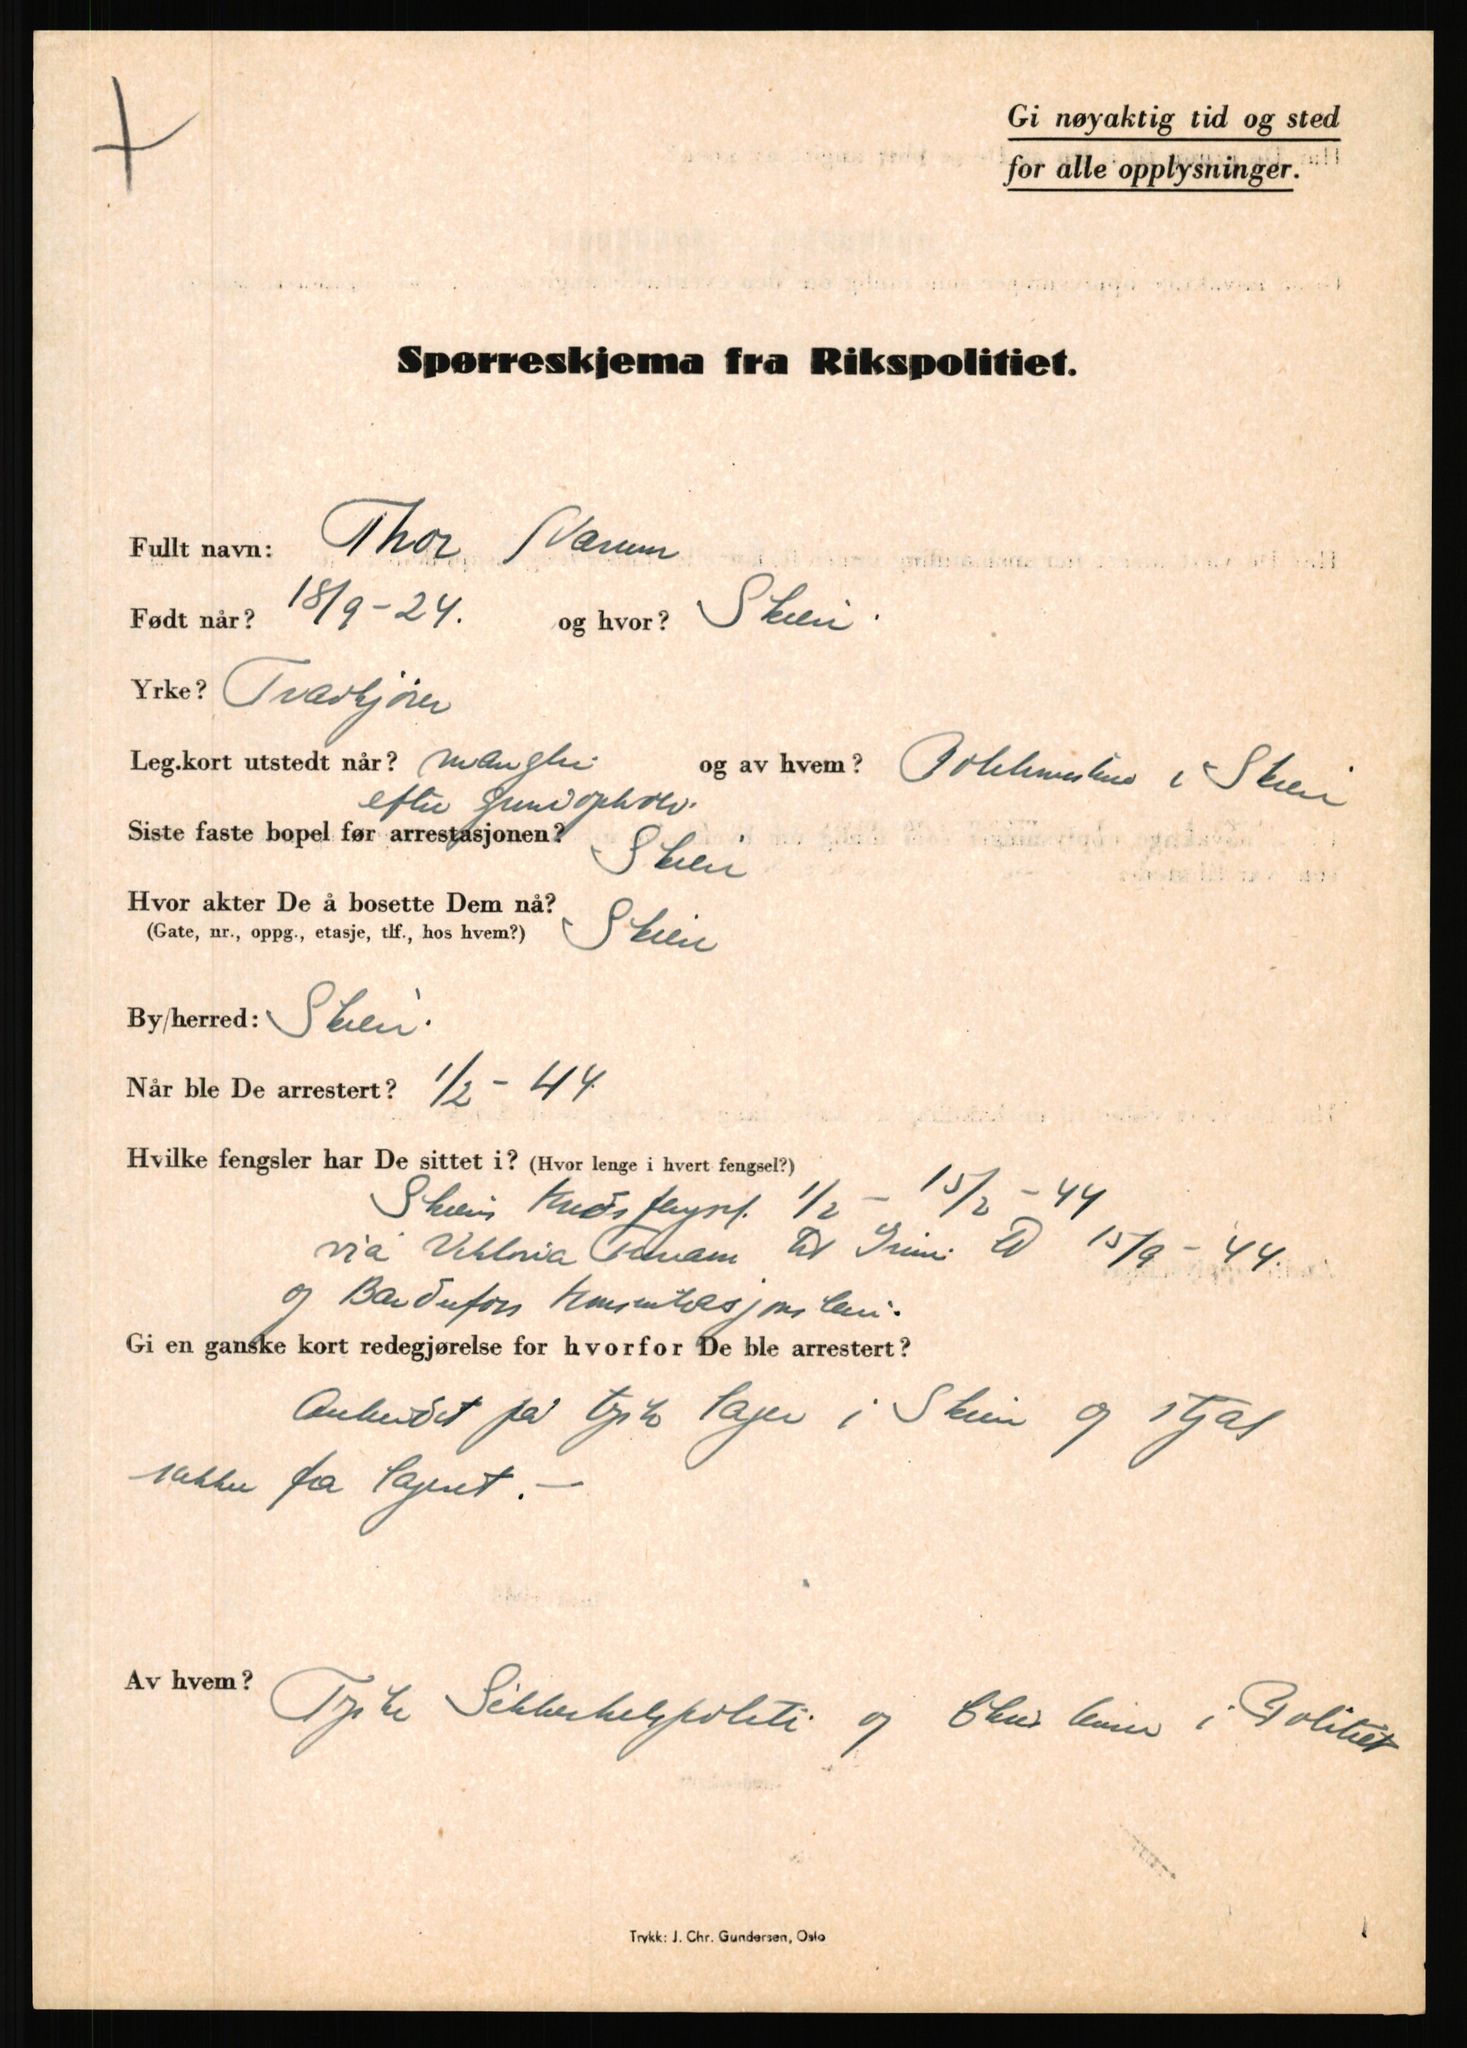 Gi nøyaktig tid og sted
for alle opplysninger.
Spørreskjema fra Rikspolitiet.
Fullt navn: Thor
Født når? 18/9-24. og hvor? Skien.
Yrke?
Leg.kort utstedt når? og av hvem? i Skien
efter
Siste faste bopel før arrestasjonen? Skien
Hvor akter De å bosette Dem nå? Skien
(Gate, nr., oppg., etasje, tlf., hos hvem?)
By/herred: Skien.
Når ble De arrestert? 1/2-44.
Hvilke fengsler har De sittet i? (Hvor lenge i hvert fengsel?)
Skiens Kretsfengsel. 1/2 - 15/2-44
via Viktoria Terrasse til Grini 15/9-44.
og Bardufoss Konsentrasjonsleir.
Gi en ganske kort redegjørelse for hvorfor De ble arrestert?
Arbeidet på tysk lager i Skien og stjal
fra lageret. -
Av hvem? Tyske Sikkerhetspoliti og i Politiet
Trykk: J. Chr. Gundersen, Oslo